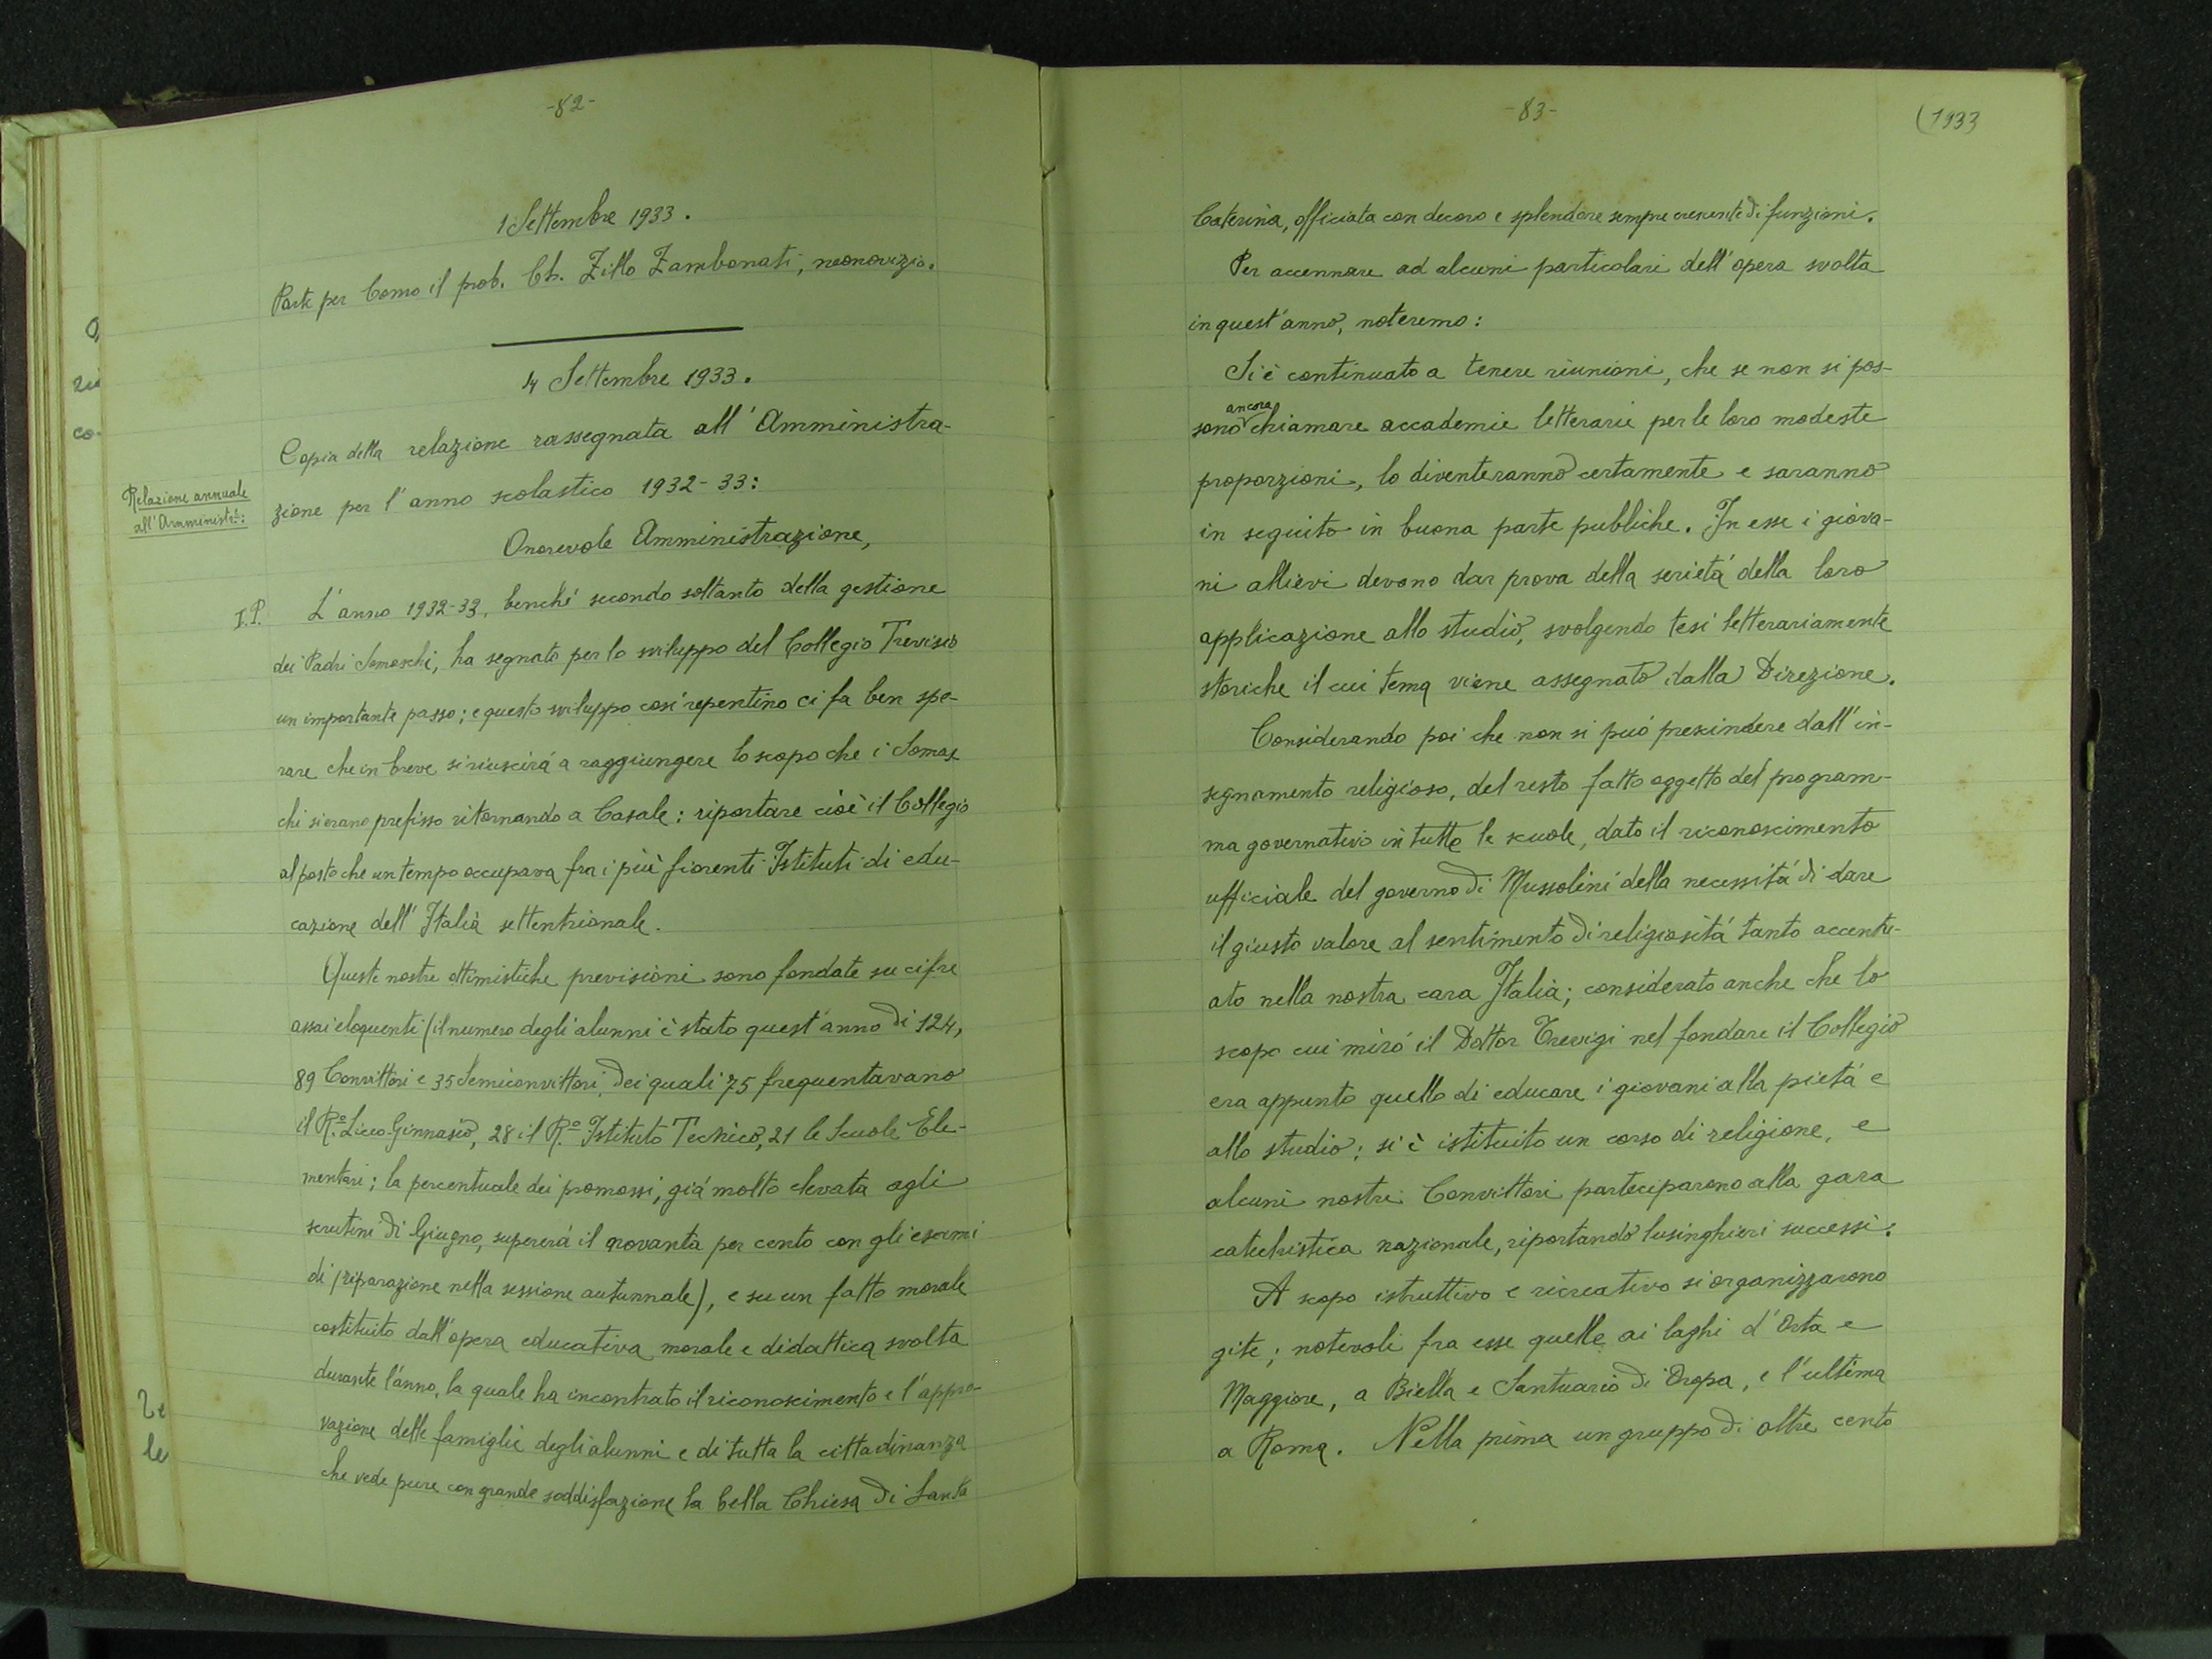 -82-
1 Settembre 1933.
Parte per Como il prob. Ch. Zillo Zambonati, neonovizio.
4 Settembre 1933.
Copia della relazione rassegnata all'Amministra-
Relazione annuale
all'Amministr.:
zione per l'anno scolastico 1932-33:
Onorevole Amministrazione,
I.P. L'anno 1932-33, benché secondo soltanto della gestione
dei Padri Somaschi, ha segnato per lo sviluppo del Collegio Trevisio
un importante passo; e questo sviluppo cosí repentino ci fa ben spe-
rare che in breve si riuscirá a raggiungere lo scopo che i Somas-
chi si erano prefisso ritornando a Casale: riportare cioè il Collegio
al posto che un tempo occupava fra i più fiorenti Istituti di edu-
cazione dell'Italia settentrionale.
Queste nostre ottimistiche previsioni sono fondate su cifre
assai eloquenti (il numero degli alunni è stato quest'anno di 124,
89 Convittori e 35 Semiconvittori, dei quali 75 frequentavano
il R.º Liceo-Ginnasio, 28 il R.º Istituto Tecnico, 21 le Scuole Ele-
mentari; la percentuale dei promossi, giá molto elevata agli
scrutini di Giugno, supererá il novanta per cento con gli esami
di riparazione nella sessione autunnale), e su un fatto morale
costituito dall'opera educativa morale e didattica svolta
durante l'anno, la quale ha incontrato il riconoscimento e l'appro-
vazione delle famiglie degli alunni e di tutta la cittadinanza
che vede pure con grande soddisfazione la bella Chiesa di Santa
-83-
(1933
Caterina, officiata con decoro e splendore sempre crescente di funzioni.
Per accennare ad alcuni particolari dell'opera svolta
in quest'anno, noteremo:
Si è continuato a tenere riunioni, che se non si pos-
sono ancora chiamare accademie letterarie per le loro modeste
proporzioni, lo diventeranno certamente e saranno
in seguito in buona parte pubbliche. In esse i giova-
ni allievi devono dar prova della serietá della loro
applicazione allo studio, svolgendo tesi letterariamente
storiche il cui tema viene assegnato dalla Direzione.
Considerando poi che non si puó prescindere dall'in-
segnamento religioso, del resto fatto oggetto del program-
ma governativo in tutte le scuole, dato il riconoscimento
ufficiale del governo di Mussolini della necessitá di dare
il giusto valore al sentimento di religiositá tanto accentu-
ato nella nostra cara Italia; considerato anche che lo
scopo cui miró il Dottor Trevigi nel fondare il Collegio
era appunto quello di educare i giovani alla pietá e
allo studio; si è istituito un corso di religione, e
alcuni nostri Convittori parteciparono alla gara
catechistica nazionale, riportando lusinghieri successi.
A scopo istruttivo e ricreativo si organizzarono
gite; notevoli fra esse quelle ai laghi d'Orta e
Maggiore, a Biella e Santuario di Oropa, e l'ultima
a Roma. Nella prima un gruppo di oltre cento